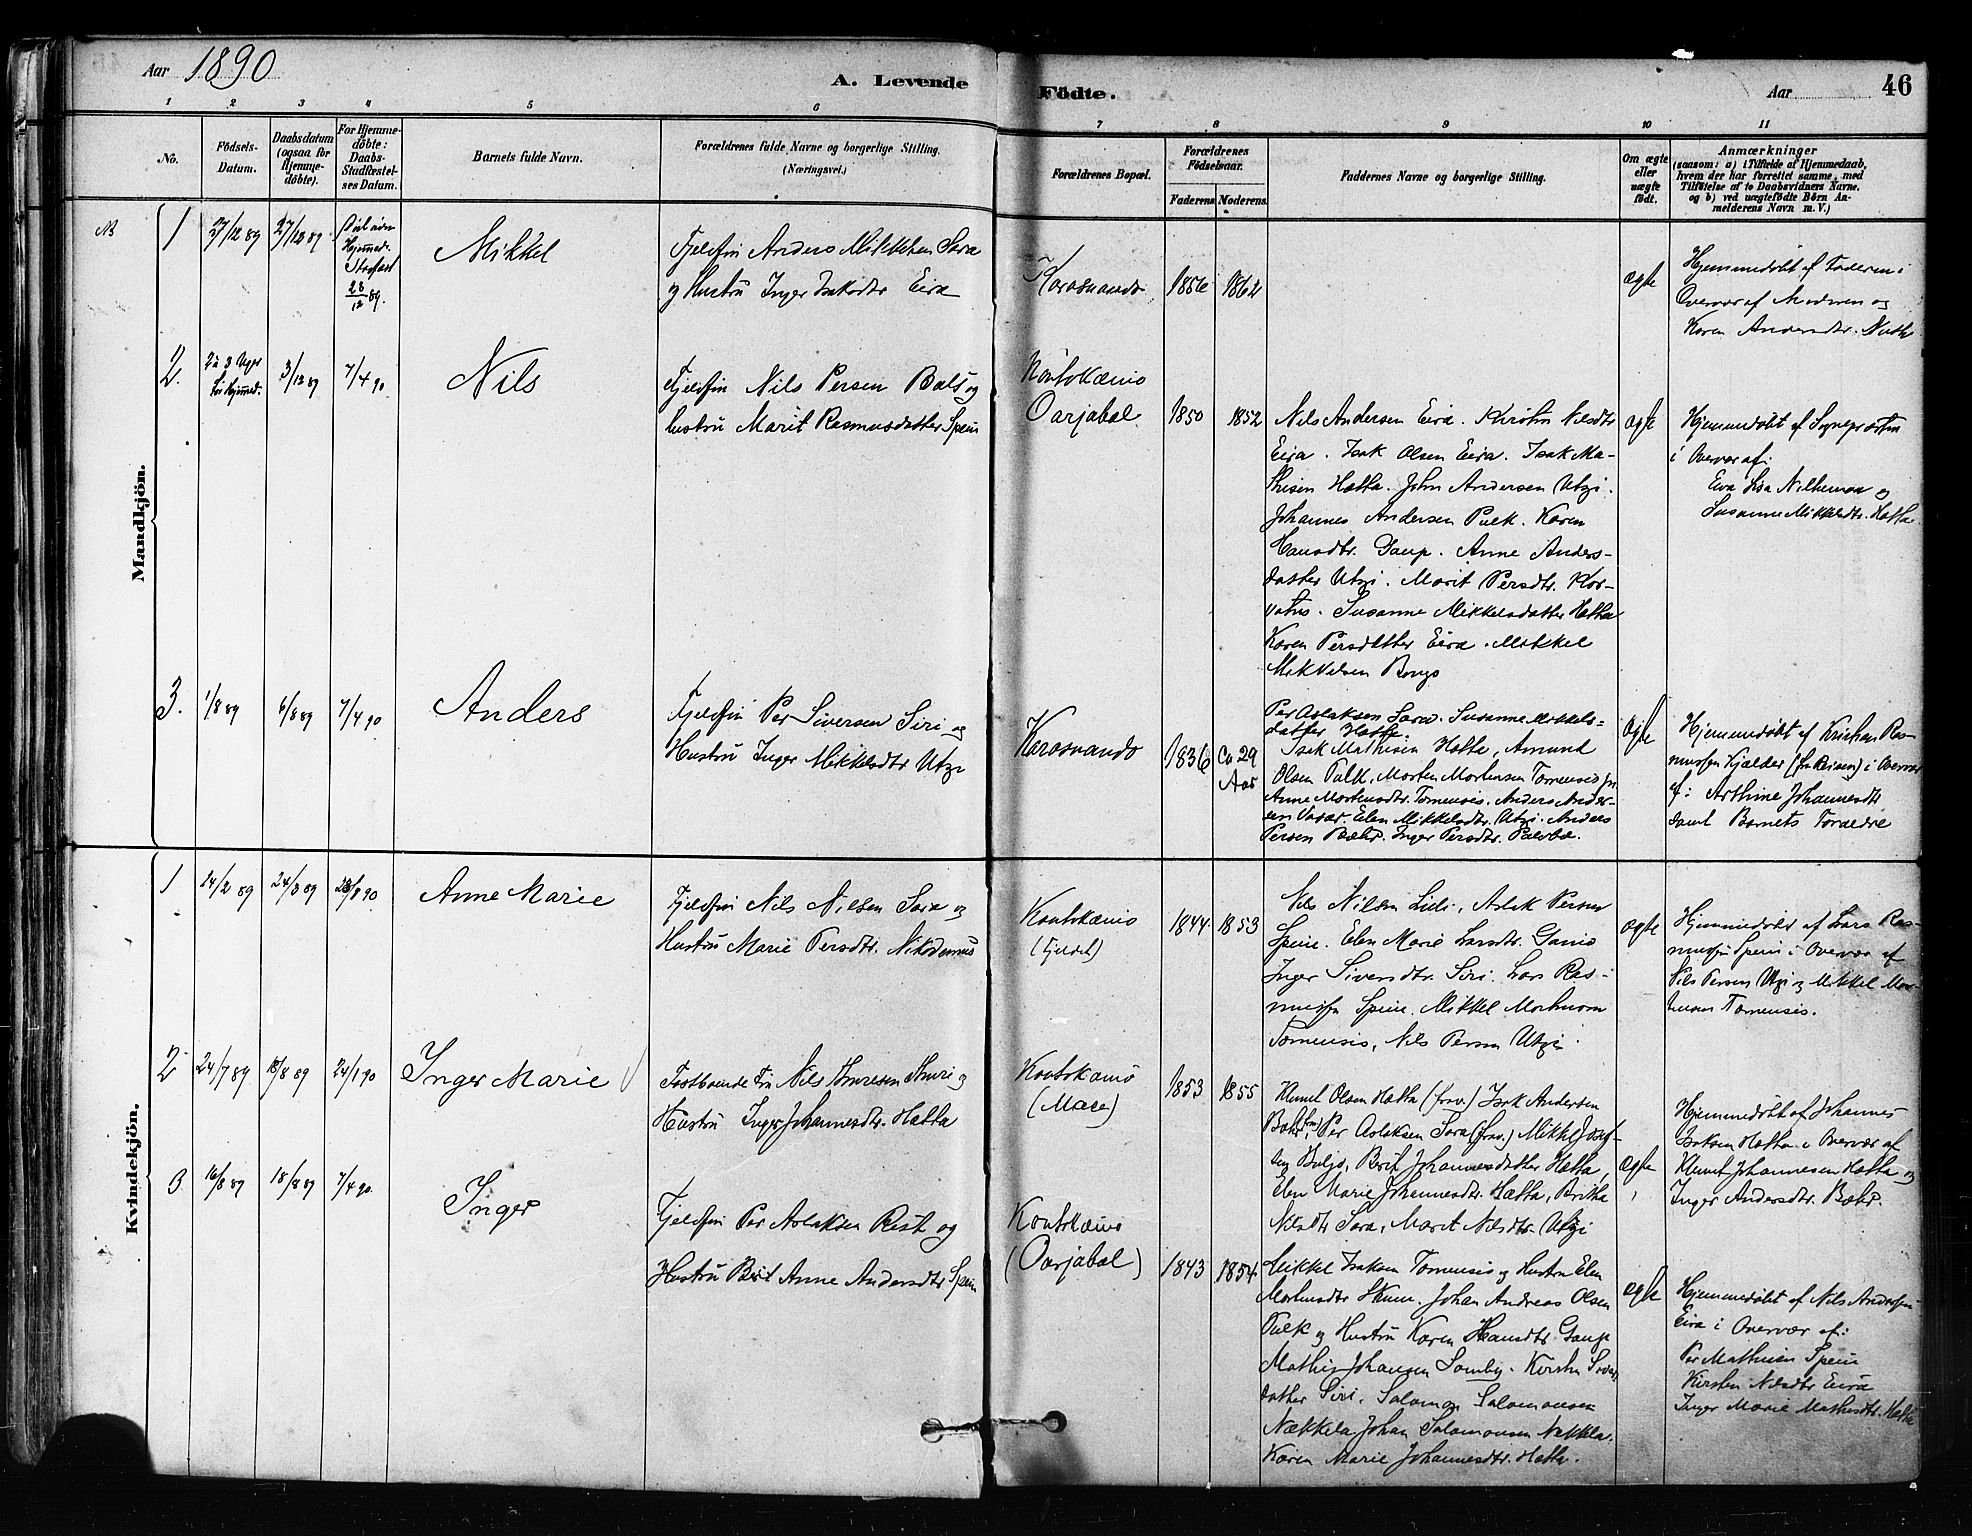 Aar 1890
A. Levende
Födte.
Aar
46
1 2 3 4 5 6 7 8 9 10 11
No.
Födsels-
Datum.
Daabsdatum
(ogsaa for
Hjemme-
döbte).
For Hjemme-
döbte:
Daabs-
Stadfæstel-
ses Datum.
Barnets fulde Navn.
Forældrenes fulde Navne og borgerlige Stilling.
(Næringsvei.)
Forældrenes Bopæl.
Forældrenes
Födselsaar.
Faderens.
Moderens.
Faddernes Navne og borgerlige Stilling.
Om ægte
eller
uægte
födt.
Anmærkninger
(saasom: a) i Tilfælde af Hjemmedaab,
hvem der har forrettet samme, med
Tilföielse af to Daabsvidners Navne,
og b) ved uægtefödte Börn An-
melderens Navn m. V.)
Mandkjön.
1 27/12 89 27/12 89
28/12 89.
Mikkel
Fjeldfin Anders Mikkelsen Sara
og Hustru Inger Isaksdtr Eira
Karasuando 1856 1862
ægte
Hjemmedøbt af Faderen i
Overvær af Moderen og
Karen Andersdtr.
2. 2 à 3 Uger
før Hjemmed.
3/12 89 7/4 90
Nils
Fjeldfin Nils Persen Bals og
hustru Marit Rasmusdatter Spein
Koutokæino
Oarjabal 1850 1852
Nils Andersen Eira. Kirsten Nilsdtr
Eira. Isak Olsen Eira. Isak Ma-
thisen Hætta. John Andersen Utzi.
Johannes Andersen Pulk. Karen
Hansdtr. Gaup. Anne Anders-
datter Utzi. Marit Persdtr. Kor-
vatus. Susanne Mikkelsdatter Hætta
Karen Persdatter Eira. Mikkel
Mikkelsen Bongo
ægte
Hjemmedøbt af Sognepresten
i Overvær af:
Eva Lisa og
Susanne Mikkelsdtr. Hætta.
3. 1/8 89 6/8 89 7/4 90
Anders
Fjeldfin Per Siversen Siri og
Hustru Inger Mikkelsdtr Utzi
Karasuando 1836 Ca 29
Aar
Per Aslaksen Sara. Susanne Mikkels-
datter Hætta.
Isak Mathisen Hætta, Amund
Olsen Pulk, Morten Mortensen Tornensis jr.
Anne Mortensdtr. Tornensis. Anders Ander-
sen Vasar. Elen Mikkelsdtr. Utzi. Anders
Persen Bæhr. Inger Persdtr.
ægte
Hjemmedøbt af Kristian Ras-
mussen Kjelder (fra Reisen) i Overvær
af: Arthine Johannesdtr
samt Barnets Forældre
Kvindekjön.
1 24/2 89 24/3 89
Anne Marie
Fjeldfin Nils Nilsen Sara og
Hustru Marie Persdtr. Nikodemus
Koutokæino
(Fjeldet)
1844. 1853
Nils Nilsen, Aslak Persen
Spein. Elen Marie Larsdtr. Gaino
Inger Siversdtr. Siri. Lars Ras-
mussen Spein. Mikkel Mortensen
Tornensis, Nils Persen Utzi.
ægte
Hjemmedøbt af Lars Ras-
mussen Spein i Overvær af
Nils Persen Utzi og Mikkel Mor-
tensen Tornensis.
2 24/7 89 18/8 89 24/1 90
Inger Marie
Fastboende Fin Nils Thuresen Thuri og
Hustru Inger Johannesdtr. Hætta
Koutokæino
(Mace)
1853 1855
Klemet Olsen Hætta (frav.) Isak Andersen
Bæhr, Per Aslaksen Sara (frav.) Mikkel Josef-
sen Buljo, Berit Johannesdatter Hætta,
Elen Marie Johannesdtr. Hætta, Britha
Nilsdtr Sara, Marit Nilsdtr. Utzi
Ægte
Hjemmedøbt af Johannes
Isaksen Hætta i Overvær af
Klemet Johannesen Hætta og
Inger Andersdtr. Bæhr.
3 16/8 89 18/8 89 7/4 90
Inger
Fjeldfin Per Aslaksen Rist og
Hustru Berit Anne Andersdtr Spein
Koutokæino
(Oarjabal)
1843 1854
Mikkel Isaksen Tornensis og Hustru Elen
Mortensdtr Skum. Johan Andreas Olsen
Pulk og Hustru Karen Hansdtr. Gaup
Mathis Johansen Somby. Kirsten
datter Siri. Salomon Salomonsen
Nækkela Johan Salomonsen Nækkla.
Karen Marie Johannesdtr. Hætta.
ægte
Hjemmedøbt af Nils Andersen
Eira i Overvær af:
Per Mathisen Spein
Kirsten Nilsdtr Eira
Inger Marie Mathisdtr. Hætta